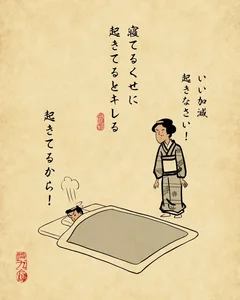 寝てるくせに
起きてるとキレる
いい加減
起きなさい！
起きてるから！